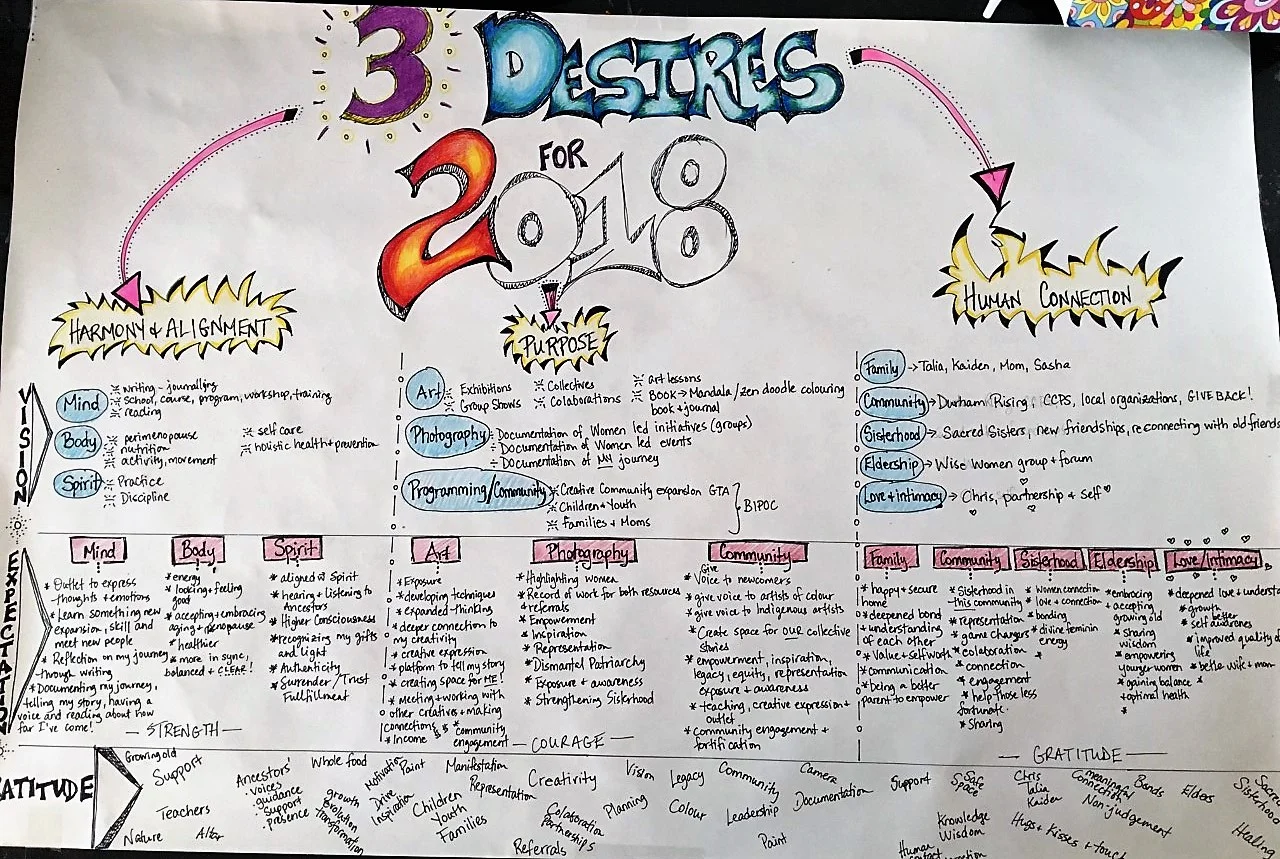 3 DESIRES
FOR
2018
HARMONY & ALIGNMENT
PURPOSE
HUMAN CONNECTION
VISION
Mind
writing - journalling
school, course, program, workshop, training
reading
Body
perimenopause
nutrition
activity, movement
self care
holistic health + prevention
Spirit
Practice
Discipline
Art
Exhibitions
Group Shows
Collectives
Colaborations
art lessons
BOOK → Mandala / zen doodle colouring
book + journal
Photography
Documentation of Women led initiatives (groups)
Documentation of Women led events
Documentation of MY journey
Programming/Community
Creative Community expansion GTA
Children + Youth
Families + Moms
BIPOC
Family → Talia, Kaiden, Mom, Sasha
Community → Durham Rising, CCPS, local organizations, GIVE BACK!
Sisterhood → Sacred Sisters, new friendships, reconnecting with old friends
Eldership → Wise Women group + forum
Love + intimacy → Chris, partnership & self
EXPECTATION
Mind
* Outlet to express
thoughts + emotions
* Learn something new
expansion, skill and
meet new people
* Reflection on my journey
through writing
* Documenting my journey,
telling my story, having a
voice and reading about how
far I've come!
Body
* energy
* looking + feeling
good
* accepting + embracing
aging + menopause
* healthier
* more in sync,
balanced + CLEAR!
Spirit
* aligned w Spirit
* hearing + Listening to
Ancestors
* Higher Consciousness
* recognizing my gifts
and light
* Authenticity
* Surrender / Trust
Fullfillment
— STRENGTH —
Art
* Exposure
* developing techniques
* expanded thinking
* deeper connection to
my creativity
* creative expression
* platform to tell my story
* creating space for ME!
* Meeting + working with
other creatives + making
connections
* Income $ $
* community
engagement
Photography
* Highlighting women
* Record of work for both resources
+ referrals
* Empowerment
* Inspiration
* Representation
* Dismantal Patriarchy
* Exposure + awareness
* Strengthening Sisterhood
— COURAGE —
Community
* Give Voice to newcomers
* give voice to artists of colour
* give voice to Indigenous artists
* Create space for OUR collective
stories
* empowerment, inspiration,
legacy, equity, representation
exposure + awareness
* teaching, creative expression +
outlet
* Community engagement +
fortification
Family
* happy + secure
home
* deepened bond
* understanding
of each other
* Value + self worth
* communication
* being a better
parent to empower
Community
* Sisterhood in
this community
* representation
* game changers
* colaboration
* connection
* engagement
* help those less
fortunate
* Sharing
Sisterhood
* Women connection
* love + connection
* bonding
* divine feminin
energy
*
Eldership
* embracing
* accepting
growing old
* sharing
wisdom
* empowering
younger women
* gaining balance
+ optimal health
*
Love/Intimacy
* deepened love + understa
* growth
* better self awarness
* improved quality of
life
* better wife + mom
*
— GRATITUDE —
ATITUDE
Growing old
Support
Teachers
Nature
Altar
Ancestors'
voices
guidance
support
presence
Whole food
growth
Evolution
Transformation
Motivation
Drive
Inspiration
Paint
Children
Youth
Families
Manifestation
Representation
Creativity
Colaboration
Partnerships
Referrals
Vision
Planning
Legacy
Colour
Community
Leadership
Paint
Camera
Documentation
Support
Safe
Space
Knowledge
Wisdom
Human
Chris
Talia
Kaiden
Hugs + Kisses + touch
meaningful
Connections
Non-judgement
Bonds
Elders
Sacred
Sisterhood
Healing